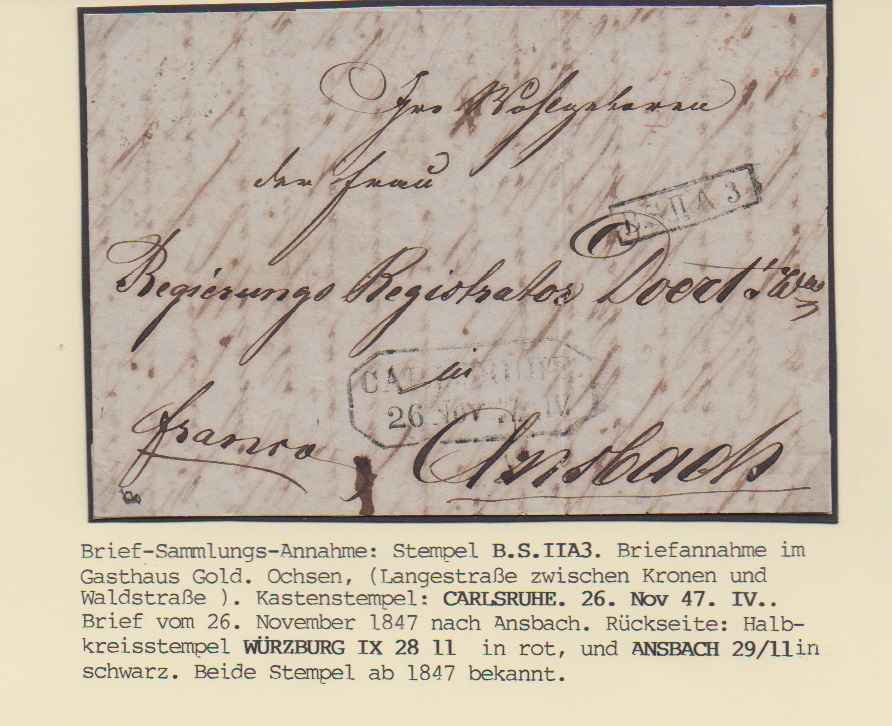 Iro Wohlgeboren
der Frau
B.S.IIA3
Regierungs Registrator Doert's
in
CARLSRUHE.
26 Nov 47. IV.
franco
Ansbach
Brief-Sammlungs-Annahme: Stempel B.S.IIA3. Briefannahme im
Gasthaus Gold. Ochsen, (Langestraße zwischen Kronen und
Waldstraße ). Kastenstempel: CARLSRUHE. 26. Nov 47. IV..
Brief vom 26. November 1847 nach Ansbach. Rückseite: Halb-
kreisstempel WÜRZBURG IX 28 11 in rot, und ANSBACH 29/11in
schwarz. Beide Stempel ab 1847 bekannt.